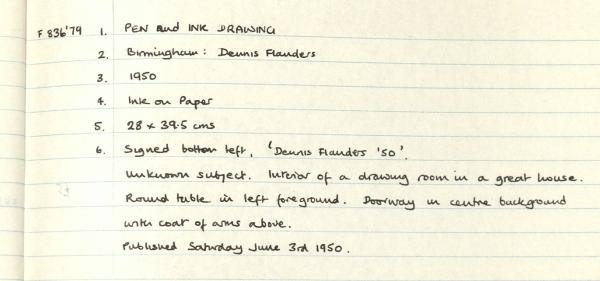 F 836'79 1. PEN and INK DRAWING
2. Birmingham: Dennis Flanders
3. 1950
4. Ink on Paper
5. 28 x 39.5 cms
6. Signed bottom left, 'Dennis Flanders '50'.
Unknown subject. Interior of a drawing room in a great house.
Round table in left foreground. Doorway in centre background
with coat of arms above.
Published Saturday June 3rd 1950.